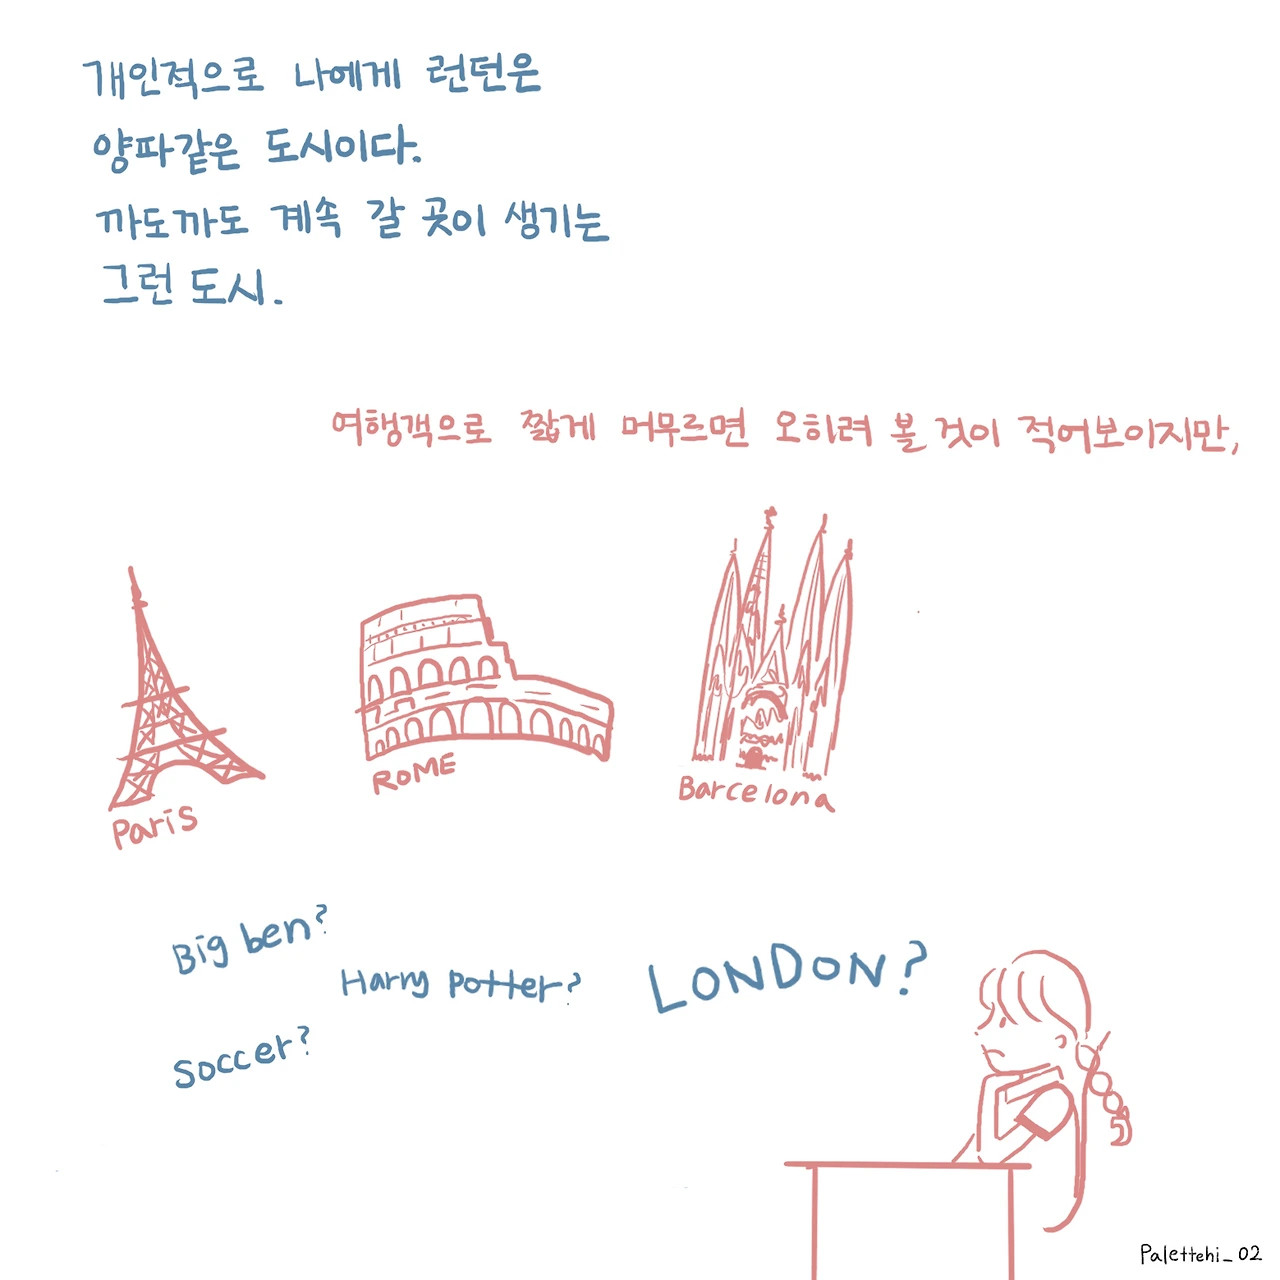 개인적으로 나에게 런던은
양파같은 도시이다.
까도까도 계속 갈 곳이 생기는
그런 도시.
여행객으로 짧게 머무르면 오히려 볼 것이 적어보이지만,
Paris
ROME
Barcelona
Big ben?
Harry Potter?
LONDON?
Soccer?
Palettehi_02